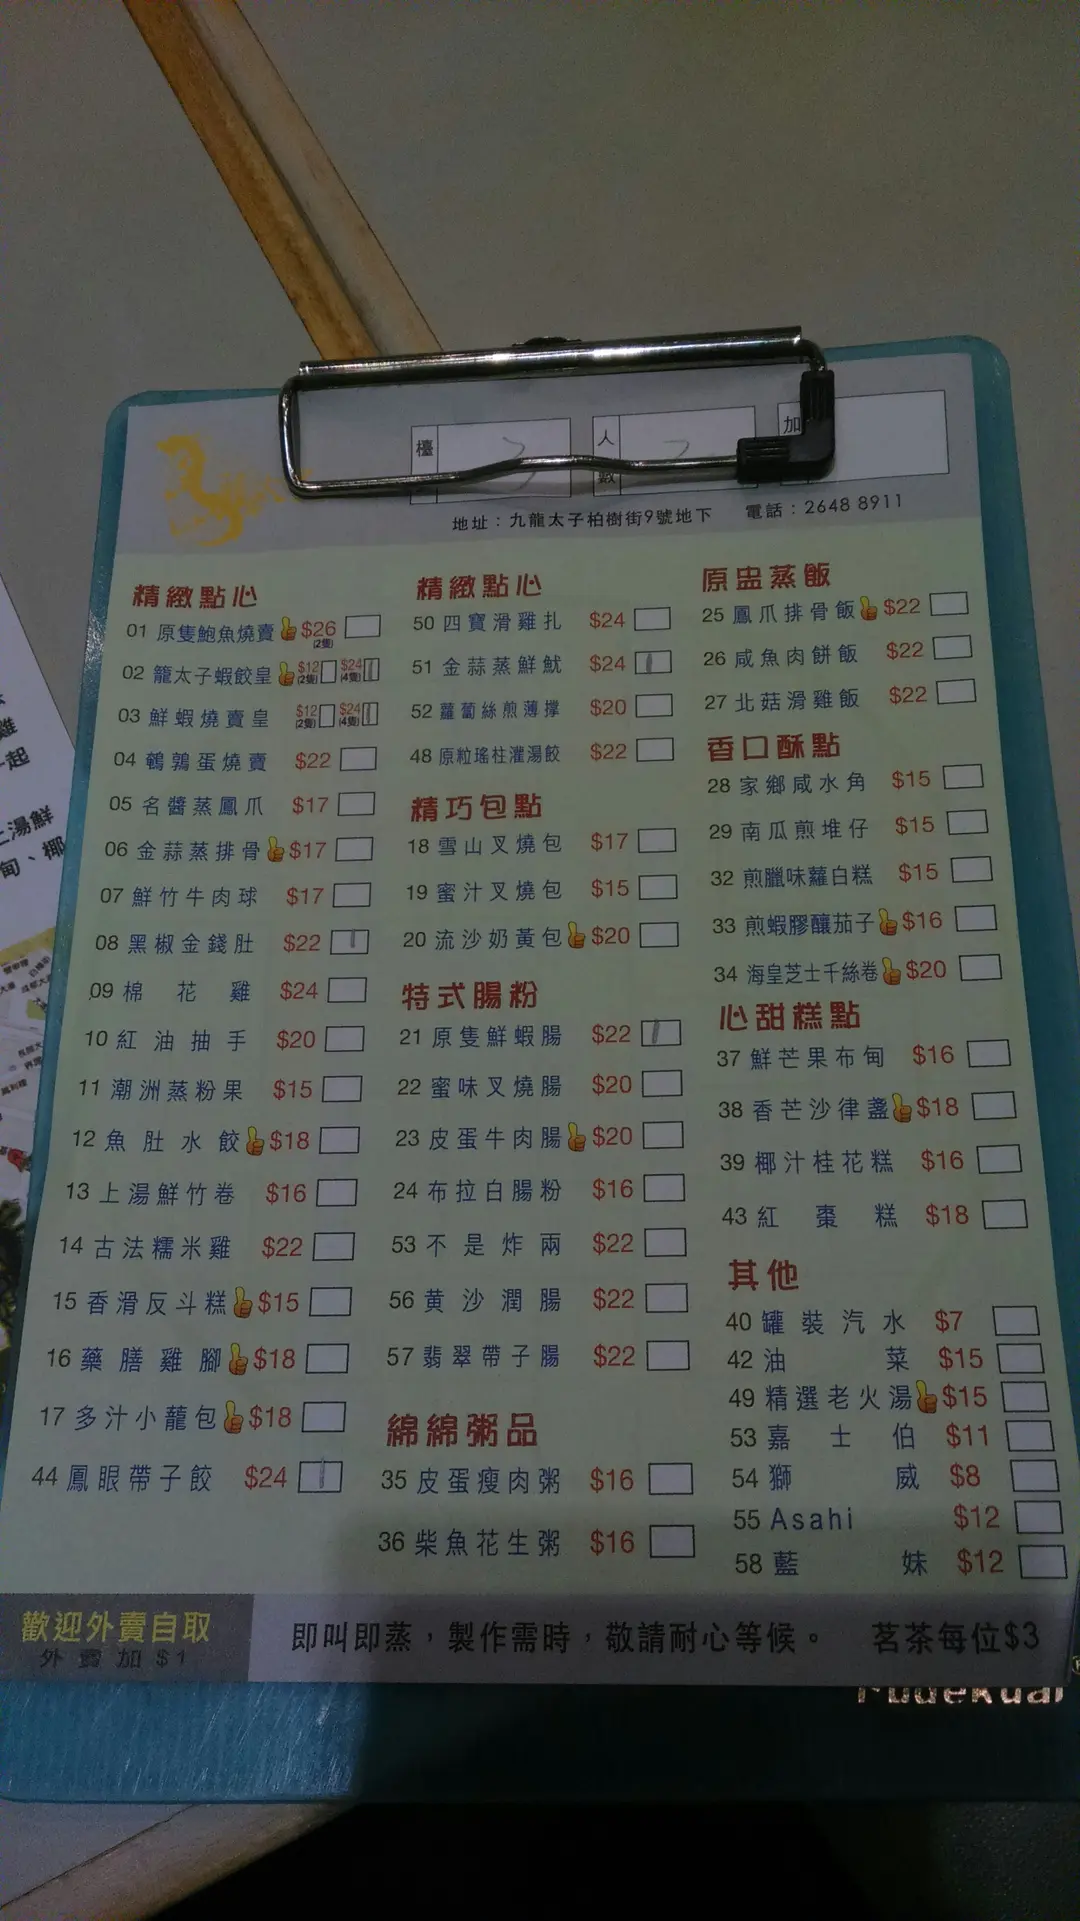 檯
人
數
加
地址：九龍太子柏樹街9號地下 電話：2648 8911
精緻點心
01 原隻鮑魚燒賣 $26 (2隻)
02 籠太子蝦餃皇 $12 (2隻) $24 (4隻)
03 鮮蝦燒賣皇 $12 (2隻) $24 (4隻)
04 鵪鶉蛋燒賣 $22
05 名醬蒸鳳爪 $17
06 金蒜蒸排骨 $17
07 鮮竹牛肉球 $17
08 黑椒金錢肚 $22
09 棉花雞 $24
10 紅油抽手 $20
11 潮洲蒸粉果 $15
12 魚肚水餃 $18
13 上湯鮮竹卷 $16
14 古法糯米雞 $22
15 香滑反斗糕 $15
16 藥膳雞腳 $18
17 多汁小蘢包 $18
44 鳳眼帶子餃 $24
精緻點心
50 四寶滑雞扎 $24
51 金蒜蒸鮮魷 $24
52 蘿蔔絲煎薄撐 $20
48 原粒瑤柱灌湯餃 $22
精巧包點
18 雪山叉燒包 $17
19 蜜汁叉燒包 $15
20 流沙奶黃包 $20
特式腸粉
21 原隻鮮蝦腸 $22
22 蜜味叉燒腸 $20
23 皮蛋牛肉腸 $20
24 布拉白腸粉 $16
53 不是炸兩 $22
56 黄沙潤腸 $22
57 翡翠帶子腸 $22
綿綿粥品
35 皮蛋瘦肉粥 $16
36 柴魚花生粥 $16
原盅蒸飯
25 鳳爪排骨飯 $22
26 咸魚肉餅飯 $22
27 北菇滑雞飯 $22
香口酥點
28 家鄉咸水角 $15
29 南瓜煎堆仔 $15
32 煎臘味蘿白糕 $15
33 煎蝦膠釀茄子 $16
34 海皇芝士千絲卷 $20
心甜糕點
37 鮮芒果布甸 $16
38 香芒沙律盞 $18
39 椰汁桂花糕 $16
43 紅棗糕 $18
其他
40 罐裝汽水 $7
42 油菜 $15
49 精選老火湯 $15
53 嘉士伯 $11
54 獅威 $8
55 Asahi $12
58 藍妹 $12
歡迎外賣自取
外賣加$1
即叫即蒸，製作需時，敬請耐心等候。 茗茶每位$3